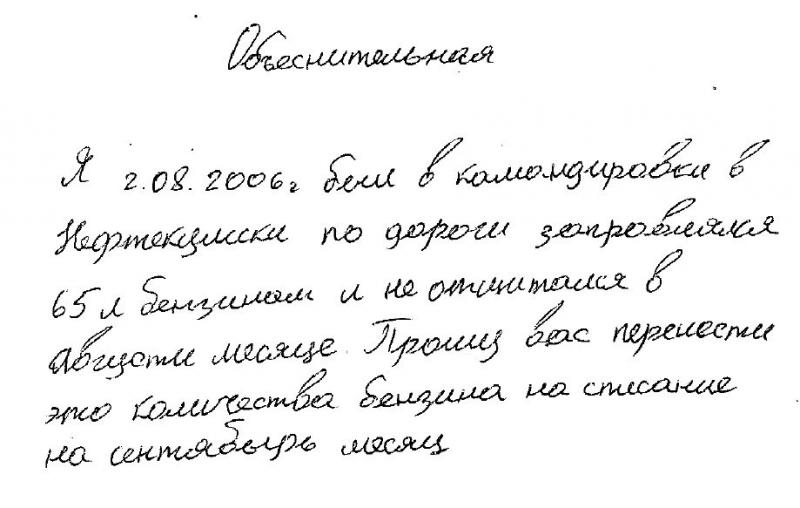 Объеснительная
Я 2.08.2006г был в камандировки в
Нефтекумски по дароги заправлялся
65 л бензином и не отчитался в
Августи месяце. Прошу вас перенести
это количества бензина на списание
на сентябырь месяц